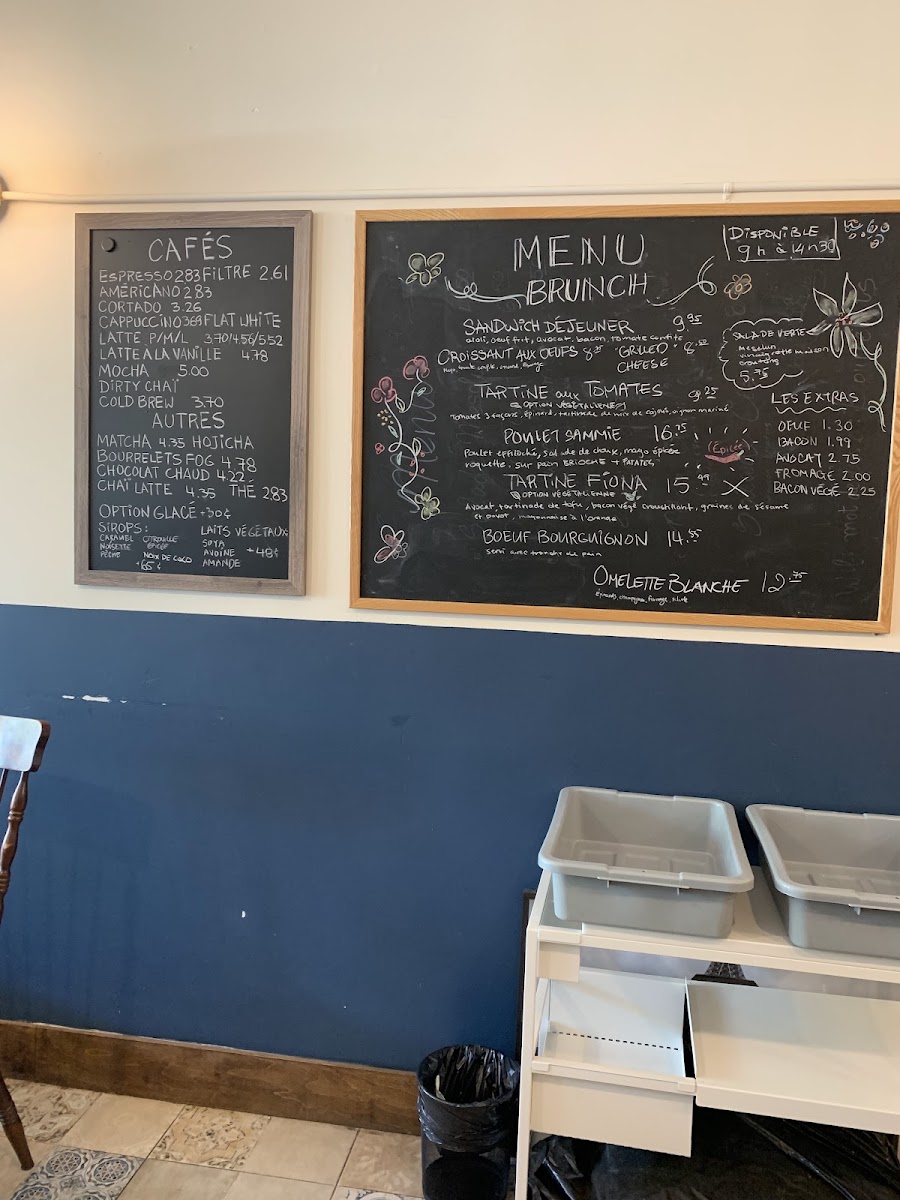 CAFÉS
ESPRESSO 2.83 FILTRE 2.61
AMÉRICANO 2.83
CORTADO 3.26
CAPPUCCINO 3.69 FLAT WHITE
LATTE P/M/L 3.70/4.56/5.52
LATTE A LA VANILLE 4.78
MOCHA 5.00
DIRTY CHAÏ
COLD BREW 3.70
AUTRES
MATCHA 4.35 HOJICHA
BOURRELETS FOG 4.78
CHOCOLAT CHAUD 4.22
CHAÏ LATTE 4.35 THÉ 2.83
OPTION GLACÉ +30¢
SIROPS:
CARAMEL CITROUILLE
NOISETTE ÉPICÉE
PÊCHE NOIX DE COCO
+65¢
LAITS VÉGÉTAUX:
SOYA
AVOINE +48¢
AMANDE
MENU
BRUNCH
DISPONIBLE
9h à 14h30
SANDWICH DÉJEUNER 9.95
aïoli, oeuf frit, avocat, bacon, tomate confite
CROISSANT AUX OEUFS 8.25 "GRILLED" 8.50
CHEESE
TARTINE aux TOMATES 9.25
OPTION VÉGÉTALIENNE
Tomates 3 façons, épinard, tartinade de noix de cajou, oignon mariné
POULET SAMMIE 16.75
(Épicée)
Poulet effiloché, salade de choux, mayo épicée
roquette. sur pain BRIOCHE + PATATES
TARTINE FIONA 15.49 X
OPTION VÉGÉTALIENNE
Avocat, tartinade de tofu, bacon végé croustillant, graines de sésame
et pavot, mayonnaise à l'orange
BOEUF BOURGUIGNON 14.55
servi avec tranche de pain
OMELETTE BLANCHE 12.75
Épinards, champignon, fromage,
SALADE VERTE
Mesclun
vinaigrette maison
croutons
5.75
LES EXTRAS
OEUF 1.30
BACON 1.99
AVOCAT 2.75
FROMAGE 2.00
BACON VÉGÉ 2.25